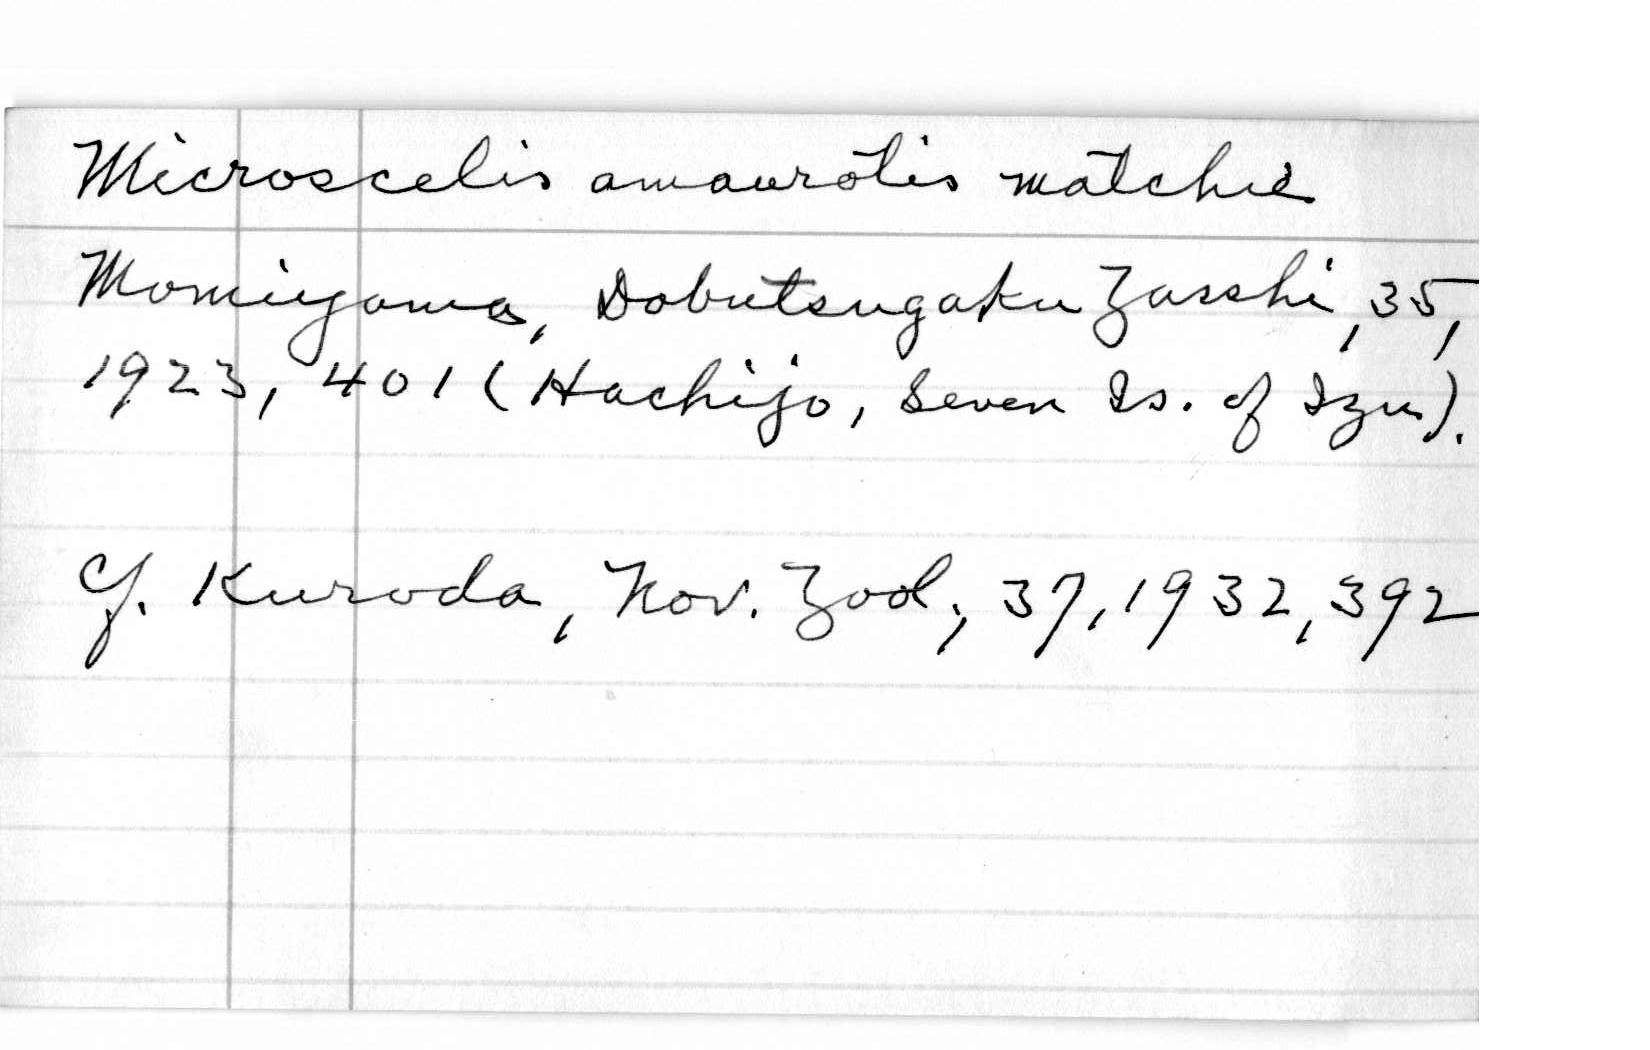 Microscelis amaurotis matchie
Momiyama, Dobutsugaku Zasshi, 35,
1923, 401 (Hachijo, Seven Is. of Izu).
Cf. Kuroda, Nov. Zool., 37, 1932, 392